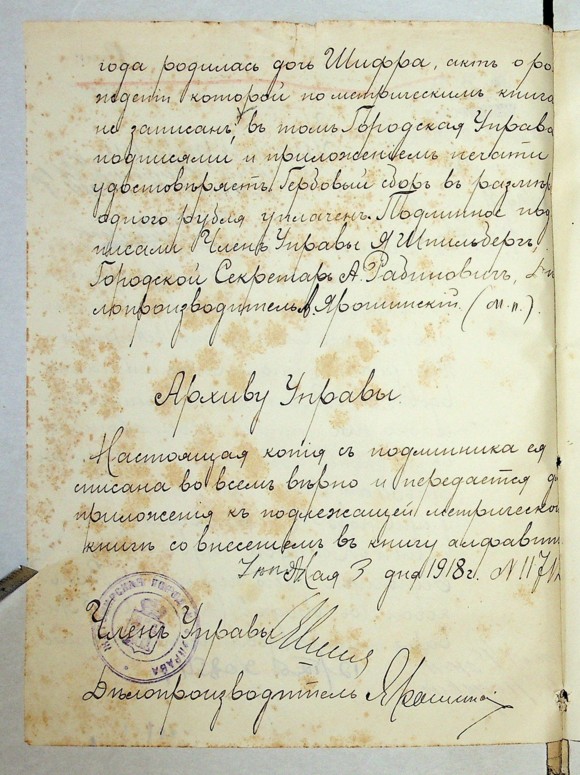 года родилась дочь Шифра, актъ о ро-
жденіи которой по метрическимъ книга
не записанъ, въ томъ Городская Управа
подписями и приложеніемъ печати
удостовѣряетъ. Гербовый сборъ въ размѣр
одного рубля уплаченъ. Подлинное под
писали Членъ Управы Я Шпильбергъ,
Городской Секретарь А. Рабиновичъ, Дѣ
лопроизводитель А. Ярошинскій. (м.п.).
Архиву Управы.
Настоящая копія съ подлинника ея
списана во всемъ вѣрно и передается д
приложенія къ подлежащей метрическо
книгѣ со внесеніемъ въ книгу алфавит
Мая 3 дня 1918 г. N 117
Членъ Управы
Дѣлопроизводитель Ярошинскій
ГОРОД
УПРАВА